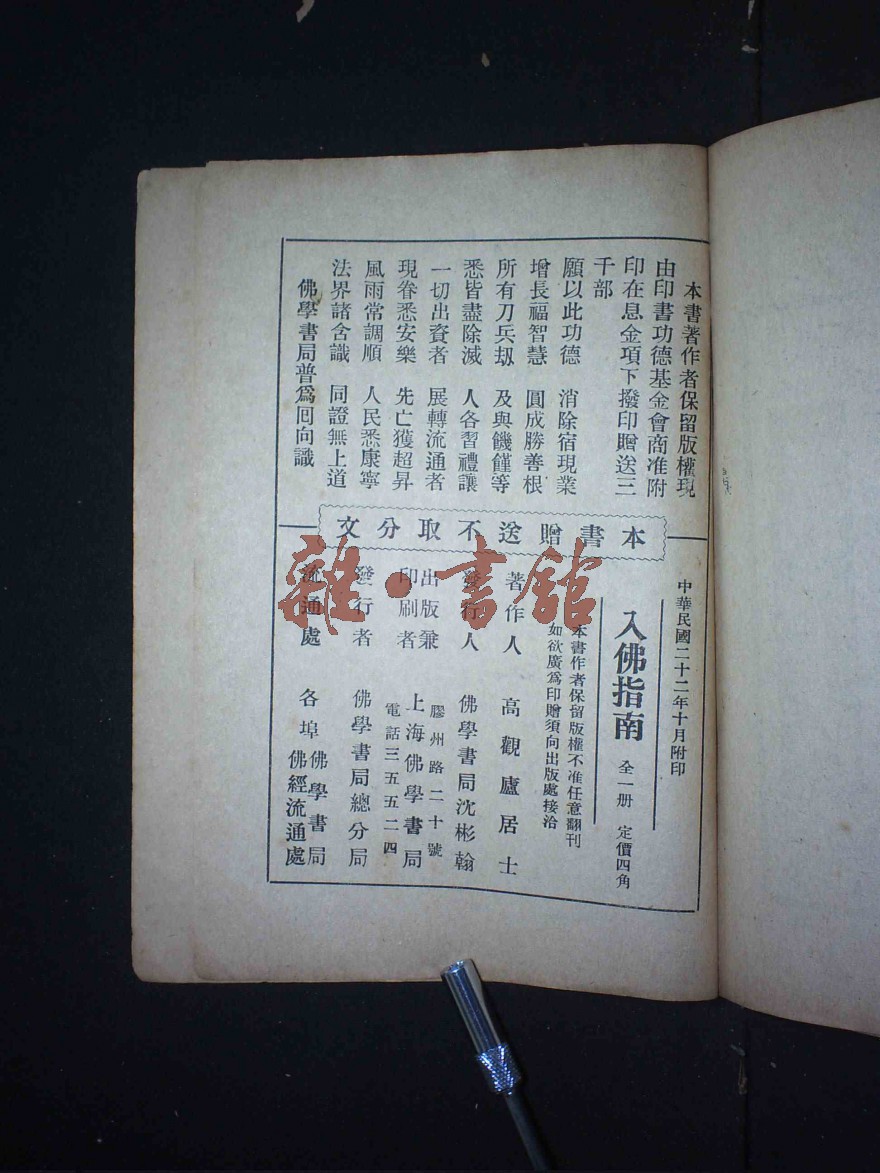 本書著作者保留版權現
由印書功德基金會商准附
印在息金項下撥印贈送三
千部
願以此功德　消除宿現業
增長福智慧　圓成勝善根
所有刀兵劫　及與饑饉等
悉皆盡除滅　人各習禮讓
一切出資者　展轉流通者
現眷悉安樂　先亡獲超昇
風雨常調順　人民悉康寧
法界諸含識　同證無上道
佛學書局普爲囘向識
本書贈送不取分文
中華民國二十二年十月附印
入佛指南　全一册　定價四角
本書作者保留版權不准任意翻刊
如欲廣爲印贈須向出版處接洽
著作人　高觀廬居士
發行人　佛學書局沈彬翰
出版兼
印刷者
膠州路二十號
上海佛學書局
電話三五五二四
發行者　佛學書局總分局
流通處　各埠
佛學書局
佛經流通處
雜·書館